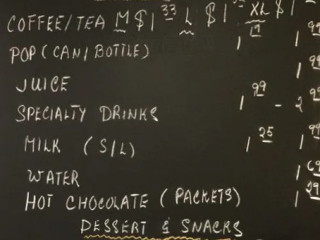 COFFEE/TEA M $1 33 L $1 XL $1
POP (CAN/BOTTLE) 1 19 1 99
JUICE 1
SPECIALTY DRINKS 1 99 - 2 99
MILK (S/L) 1 25 1 99
WATER 1 69
HOT CHOCOLATE (PACKETS) 1 29
DESSERT & SNACKS